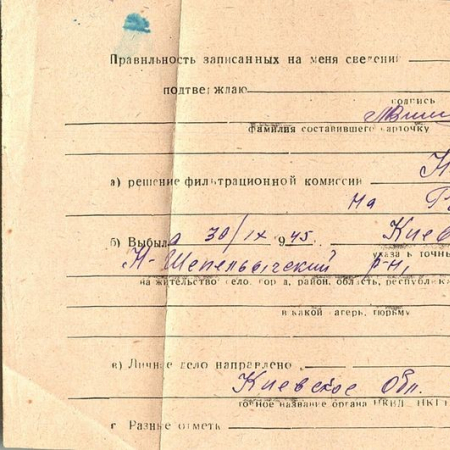 Правильность записанных на меня сведений
подтверждаю
подпись
фамилия составившего карточку
а) решение фильтрационной комиссии
на
б) Выбыла 30/IX 1945. Киев
указать точны
Н-Шепеличский р-н,
на жительство село, города, район, область, республика
в какой лагерь, тюрьму
в) Личное дело направлено
Киевское Обл.
точное название органа НКВД НКГБ
г Разные отметк